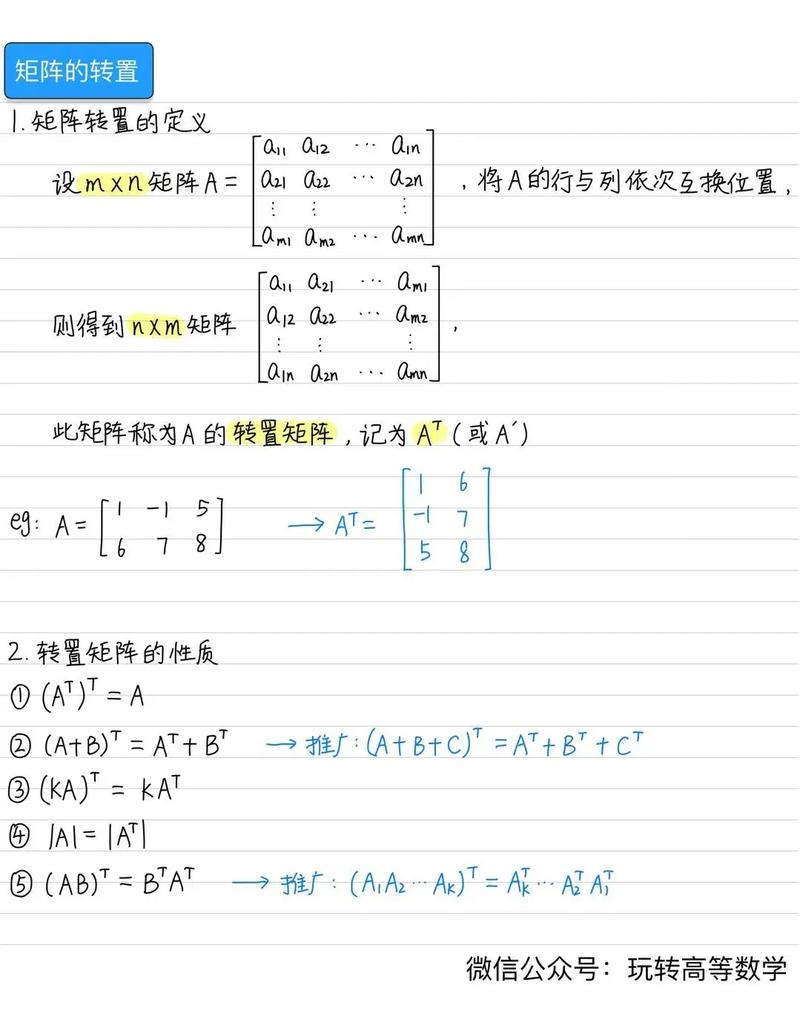 矩阵的转置
1. 矩阵转置的定义
设 m×n 矩阵 A = [a₁₁ a₁₂ ⋯ a₁ₙ
a₂₁ a₂₂ ⋯ a₂ₙ
⋮ ⋮ ⋮
aₘ₁ aₘ₂ ⋯ aₘₙ] , 将 A 的行与列依次互换位置,
则得到 n×m 矩阵 [a₁₁ a₂₁ ⋯ aₘ₁
a₁₂ a₂₂ ⋯ aₘ₂
⋮ ⋮ ⋮
a₁ₙ a₂ₙ ⋯ aₘₙ] ,
此矩阵称为 A 的转置矩阵, 记为 Aᵀ (或 A′)
eg: A = [1 -1 5
6 7 8] → Aᵀ = [1 6
-1 7
5 8]
2. 转置矩阵的性质
① (Aᵀ)ᵀ = A
② (A+B)ᵀ = Aᵀ+Bᵀ → 推广: (A+B+C)ᵀ = Aᵀ+Bᵀ+Cᵀ
③ (kA)ᵀ = kAᵀ
④ |A| = |Aᵀ|
⑤ (AB)ᵀ = BᵀAᵀ → 推广: (A₁A₂⋯Aₖ)ᵀ = Aₖᵀ⋯A₂ᵀA₁ᵀ
微信公众号：玩转高等数学